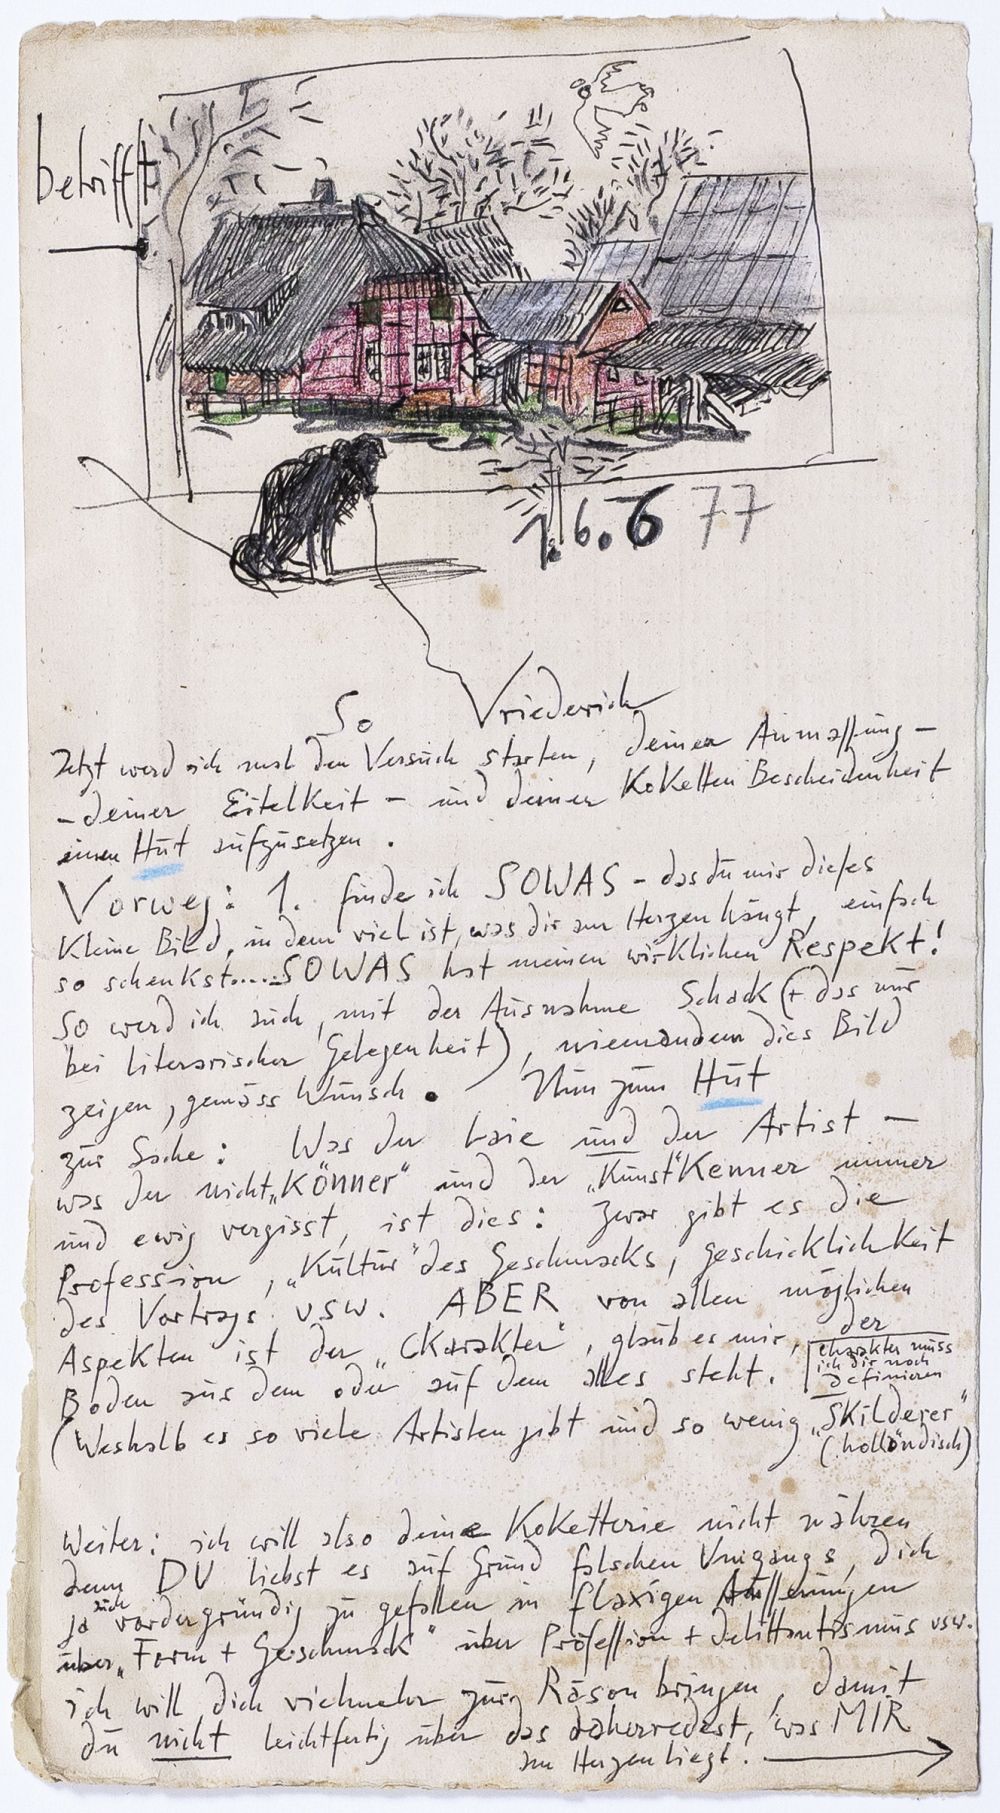 betrifft
1.6.6 77
So Vriederich
Jetzt werd ich mal den Versuch starten, deiner Anmassung –
– deiner Eitelkeit – und deiner Koketten Bescheidenheit
einen Hut aufzusetzen.
Vorweg: 1. finde ich SOWAS – das du mir dieses
kleine Bild, in dem viel ist, was dir am Herzen hängt, einfach
so schenkst..... SOWAS hat meinen wirklichen Respekt!
So werd ich auch, mit der Ausnahme Schack (+ das nur
bei literarischer Gelegenheit), niemandem dies Bild
zeigen, gemäss Wunsch. Nun zum Hut
zur Sache: Was der Laie und der Artist –
was der nicht „Könner" und der „Kunst"Kenner immer
und ewig vergisst, ist dies: zwar gibt es die
Profession, „Kultur" des Geschmacks, Geschicklichkeit
des Vortrags usw. ABER von allen möglichen
Aspekten ist der „Charakter", glaub es mir, der
Boden aus dem oder auf dem alles steht.
charakter muss
ich dir noch
definieren
(Weshalb es so viele Artisten gibt und so wenig „Skilderer"
(holländisch)
Weiter: ich will also deine Koketterie nicht nähren
denn DU liebst es auf Grund falschen Umgangs, dich
ja auch vordergründig zu gefallen in flaxigen Äusserungen
über „Form + Geschmack" über Profession + Dilittantismus usw.
ich will dich vielmehr zur Räson bringen, damit
du nicht leichtfertig über das daherredest, was MIR
am Herzen liegt.